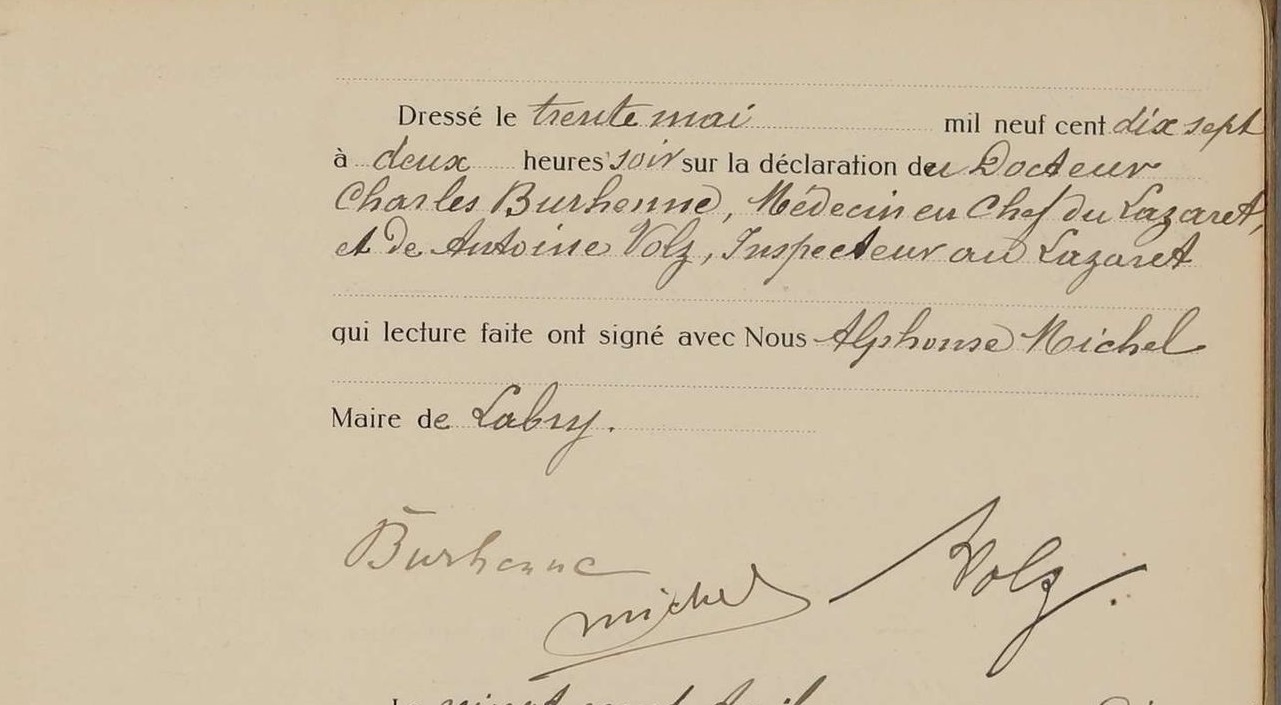 Dressé le trente mai mil neuf cent dix sept
à deux heures soir sur la déclaration du Docteur
Charles Burhenne, Médecin en Chef du Lazaret,
et de Antoine Volz, Inspecteur au Lazaret
qui lecture faite ont signé avec Nous Alphonse Michel
Maire de Labry.
Burhenne
Michel
Volz.